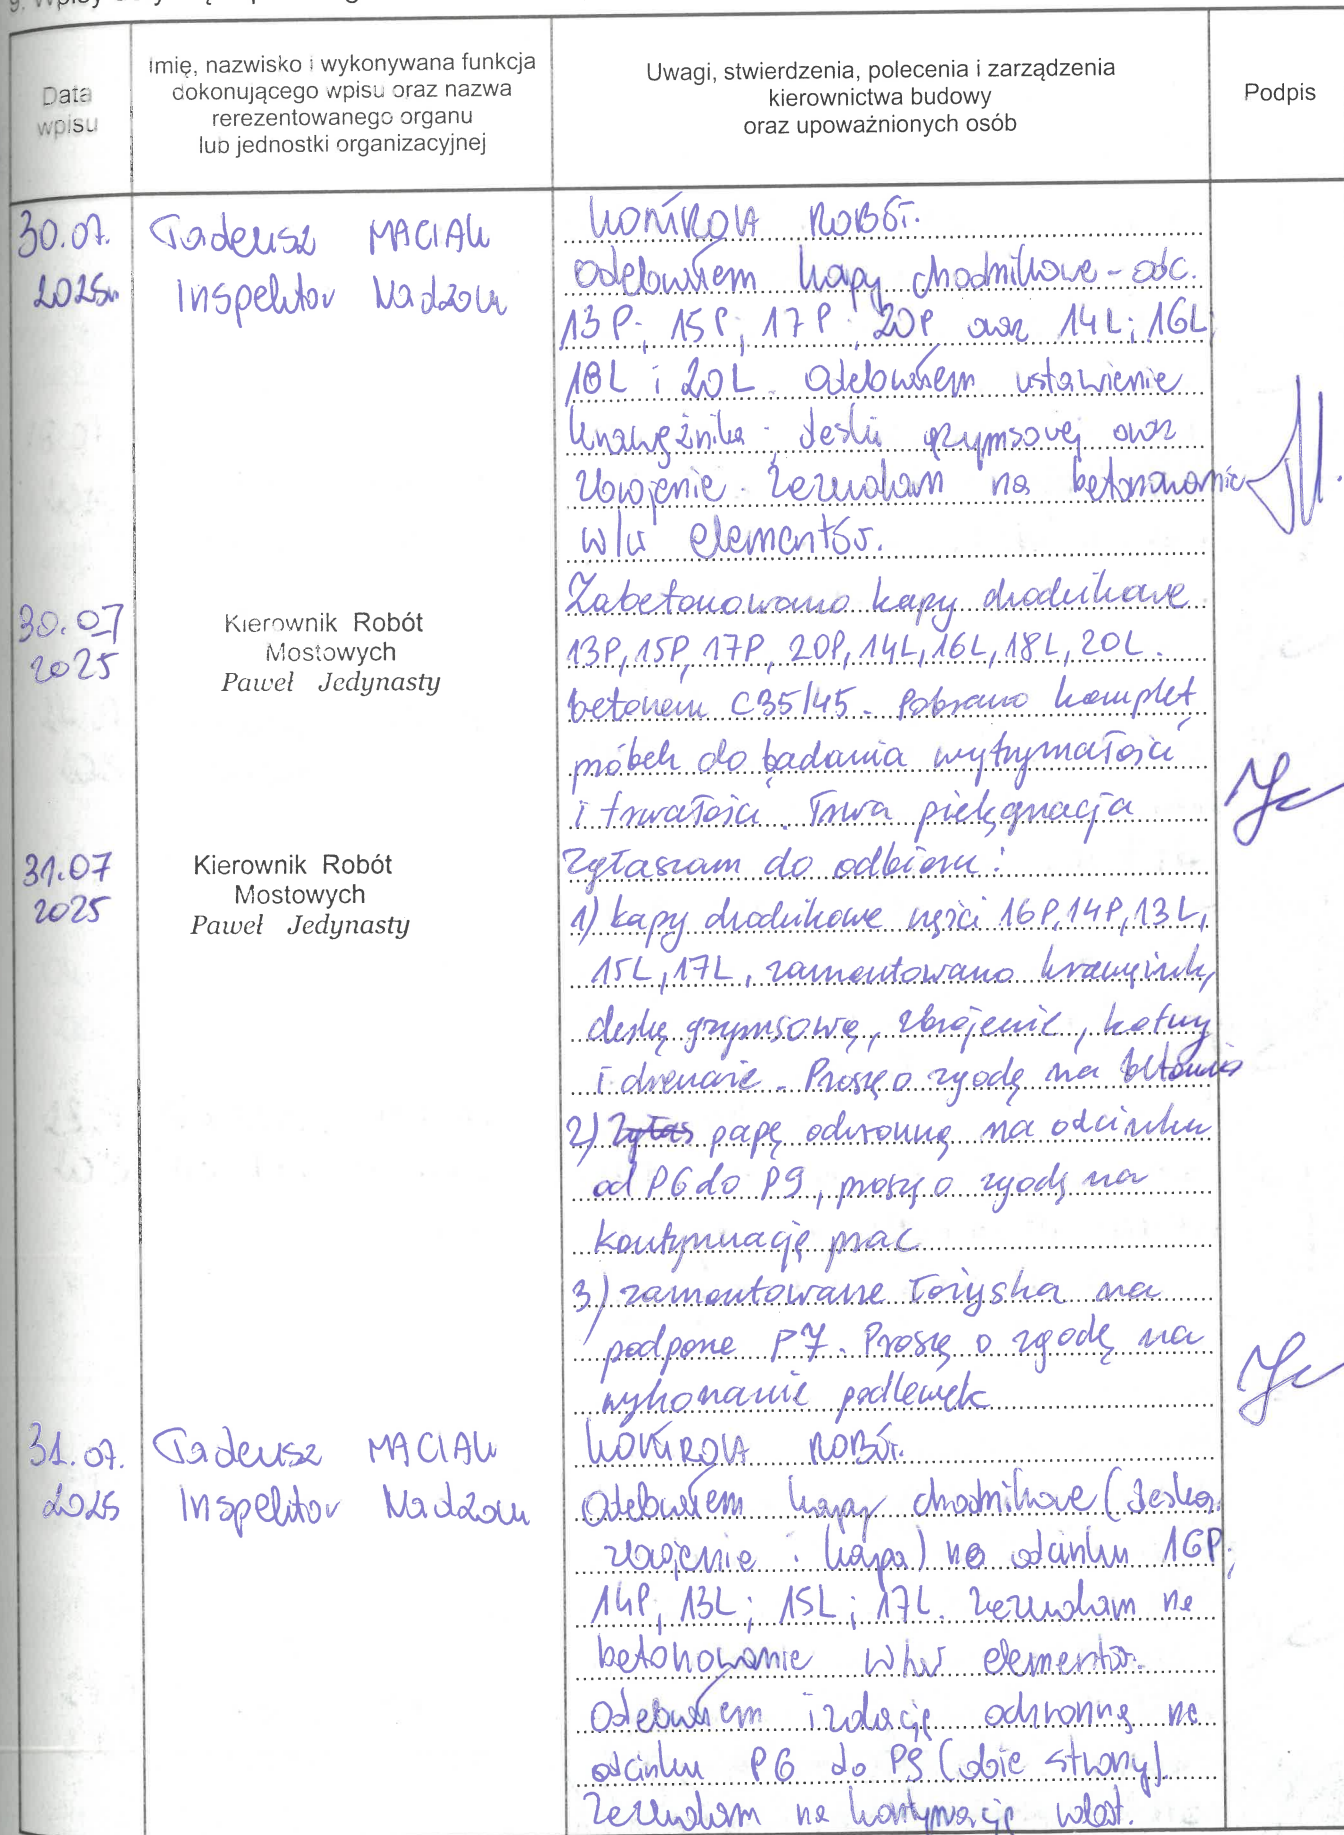 Data
wpisu
Imię, nazwisko i wykonywana funkcja
dokonującego wpisu oraz nazwa
rerezentowanego organu
lub jednostki organizacyjnej
Uwagi, stwierdzenia, polecenia i zarządzenia
kierownictwa budowy
oraz upoważnionych osób
Podpis
30.07.
2025r
Tadeusz MACIAK
Inspektor Nadzoru
KONTROLA ROBÓT.
Odebrałem kapy chodnikowe - odc.
13P; 15P; 17P; 20P oraz 14L; 16L
18L i 20L. Odebrałem ustawienie
krawężnika; deski gzymsowej oraz
zbrojenie. Zezwalam na betonowanie
w/w elementów.
30.07
2025
Kierownik Robót
Mostowych
Paweł Jedynasty
Zabetonowano kapy chodnikowe
13P, 15P, 17P, 20P, 14L, 16L, 18L, 20L.
betonem C35/45. Pobrano komplet
próbek do badania wytrzymałości
i trwałości. Trwa pielęgnacja
31.07
2025
Kierownik Robót
Mostowych
Paweł Jedynasty
Zgłaszam do odbioru:
1) kapy chodnikowe części 16P, 14P, 13L,
15L, 17L, zamontowano krawężnik,
deskę gzymsową, zbrojenie, kotwy
i drenaże. Proszę o zgodę na
2) Zgłas papę ochronną na odcinku
od P6 do P9, proszę o zgodę na
kontynuację prac
3) zamontowane łożyska na
podporze P7. Proszę o zgodę na
wykonanie podlewek
31.07.
2025
Tadeusz MACIAK
Inspektor Nadzoru
KONTROLA ROBÓT.
Odebrałem kapy chodnikowe (deska
zbrojenie i kapa) na odcinku 16P;
14P; 13L; 15L; 17L. Zezwalam na
betonowanie w/w elementów.
Odebrałem izolację ochronną na
odcinku P6 do P9 (obie strony).
Zezwalam na kontynuację robót.